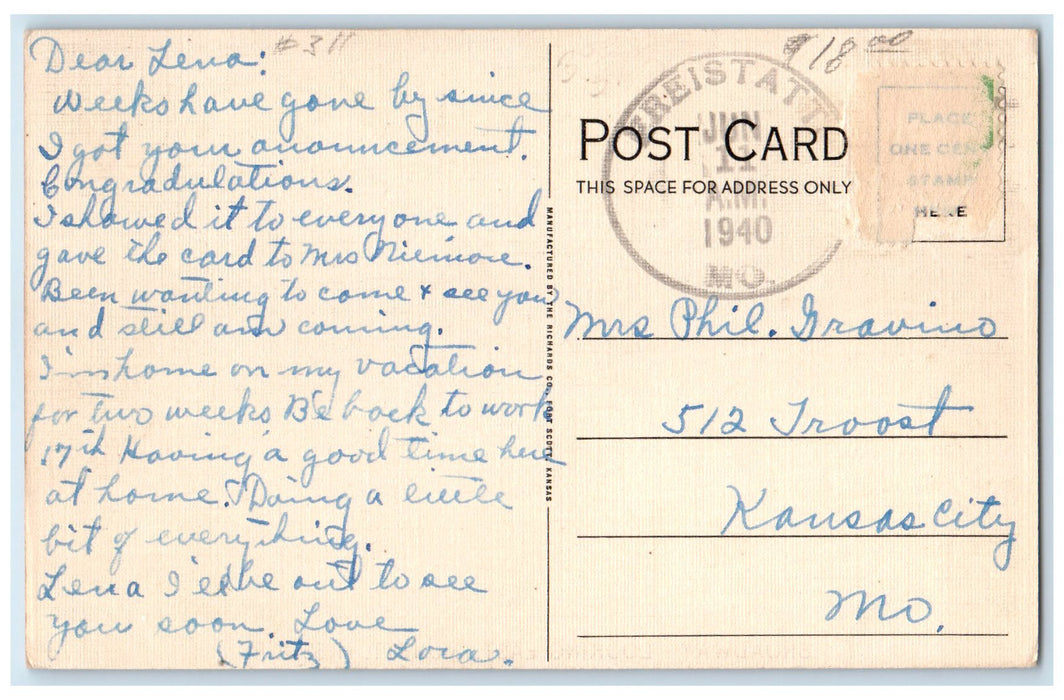 Dear Lena:
Weeks have gone by since
I got your anouncement.
Congradulations.
I showed it to everyone and
gave the card to Mrs Niemore.
Been wanting to come & see you
and still am coming.
I'm home on my vacation
for two weeks Be back to work
17th Having a good time here
at home. Doing a little
bit of everything.
Lena I'll be out to see
you soon. Love
(Fritz) Lora.
#311
$18.00
FREISTATT
JUN
11
A.M.
1940
MO.
PLACE
ONE CENT
STAMP
HERE
POST CARD
THIS SPACE FOR ADDRESS ONLY
MANUFACTURED BY THE RICHARDS CO., FORT SCOTT, KANSAS
Mrs Phil. Gravino
512 Troost
Kansas City
Mo.